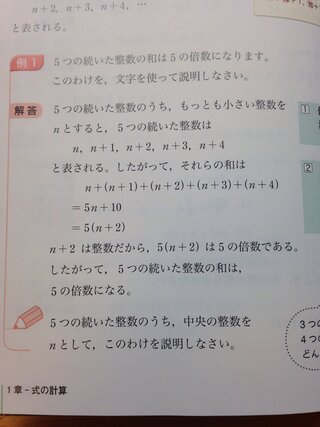 n+2, n+3, n+4, …
と表される。
例1 5つの続いた整数の和は5の倍数になります。
このわけを，文字を使って説明しなさい。
解答 5つの続いた整数のうち，もっとも小さい整数を
nとすると，5つの続いた整数は
n, n+1, n+2, n+3, n+4
と表される。したがって，それらの和は
n+(n+1)+(n+2)+(n+3)+(n+4)
=5n+10
=5(n+2)
n+2 は整数だから，5(n+2) は5の倍数である。
したがって，5つの続いた整数の和は，
5の倍数になる。
5つの続いた整数のうち，中央の整数を
nとして，このわけを説明しなさい。
1章−式の計算
1
2
3つの
4つの
どん